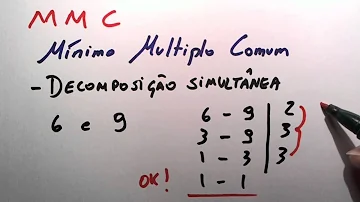 MMC
Mínimo Multiplo Comum
- DECOMPOSIÇÃO SIMULTÂNEA
6 e 9
6 - 9 | 2
3 - 9 | 3
1 - 3 | 3
OK! 1 - 1